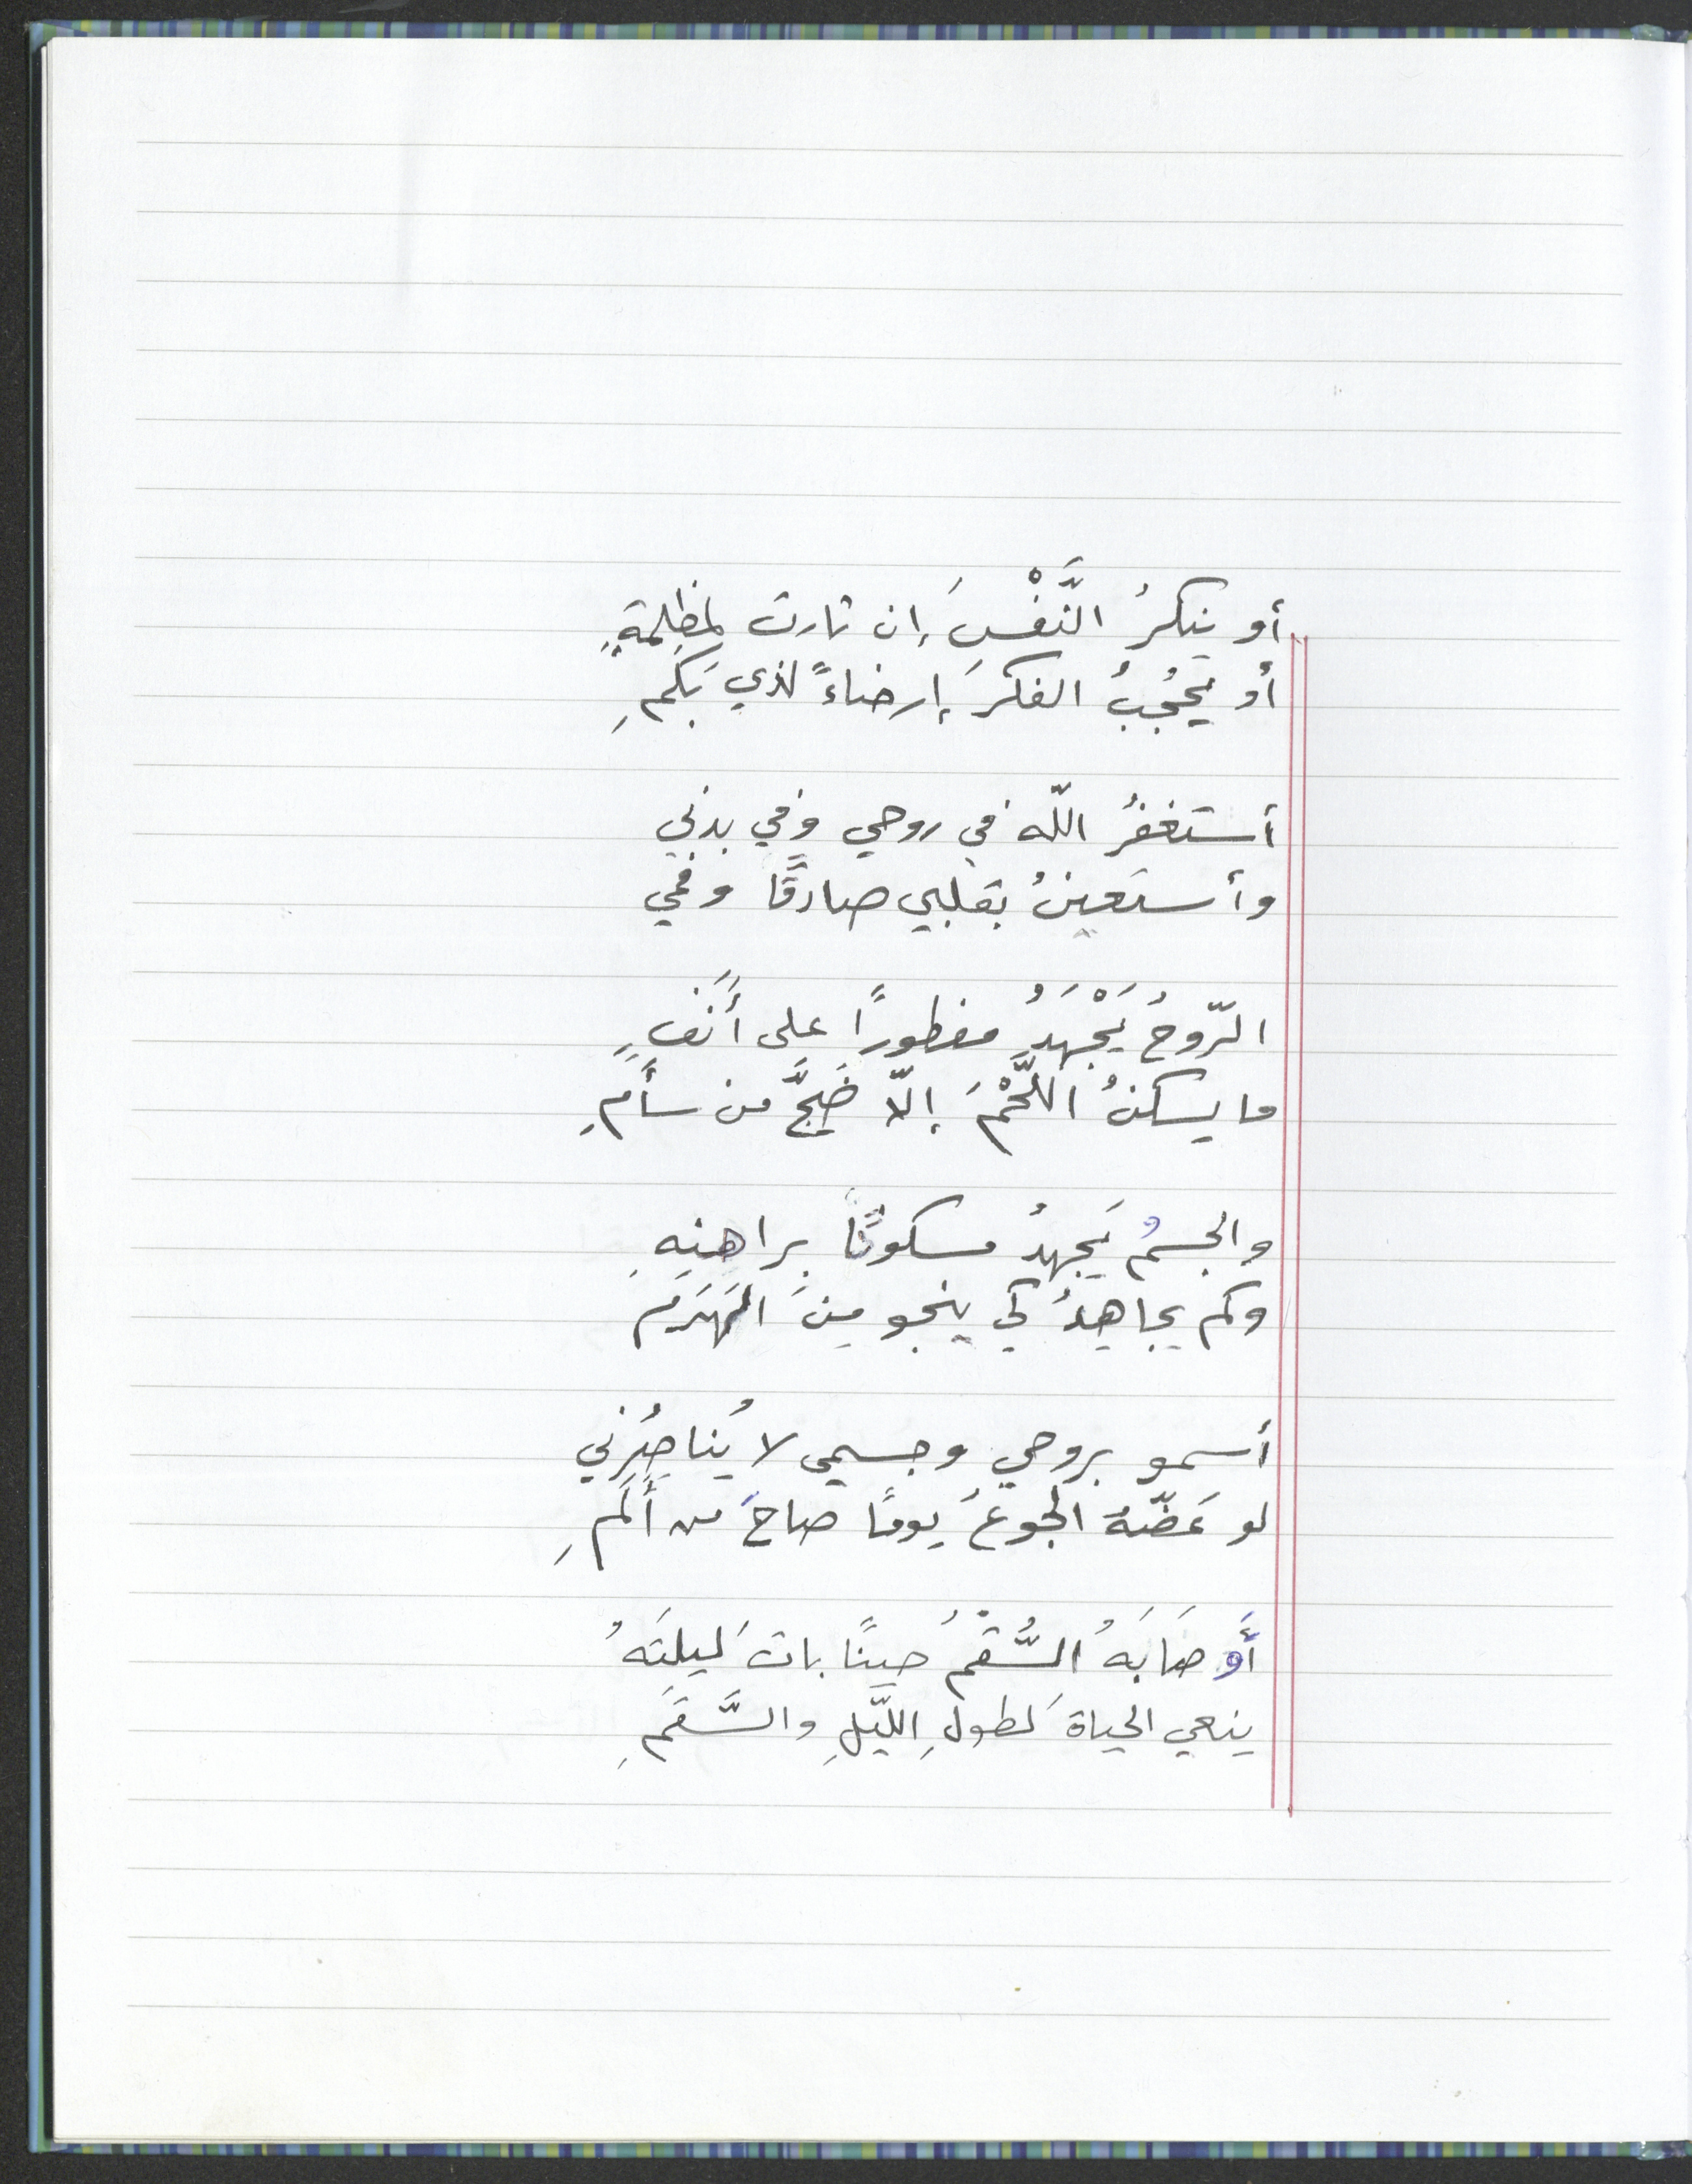 أو ينكرُ النَّفْسَ إن ثارت لمظلمةٍ
أو يَحْجُبُ الفكرَ إرضاءً لذي بَكَمِ
أستغفرُ اللّه في روحي وفي بدني
وأستعينُ بقلبي صادقًا وفمي
الرّوحُ يَجْهَدُ مفطورًا على أَنَفٍ
ما يسكنُ اللَّحْمَ إلّا ضَجَّ من سأَمِ
والجسمُ يَجهدُ مسكونًا براهنِهِ
وكم يجاهِدُ كي ينجو مِنَ الهَرَمِ
أسمو بروحي وجسمي لا يُناصِرُني
لو عَضّهُ الجوعُ يومًا صاحَ من أَلَمِ
أَو صَابَهُ السُّقْمُ حينًا باتَ ليلتَهُ
ينعي الحياةَ لطولِ اللّيلِ والسَّقَمِ